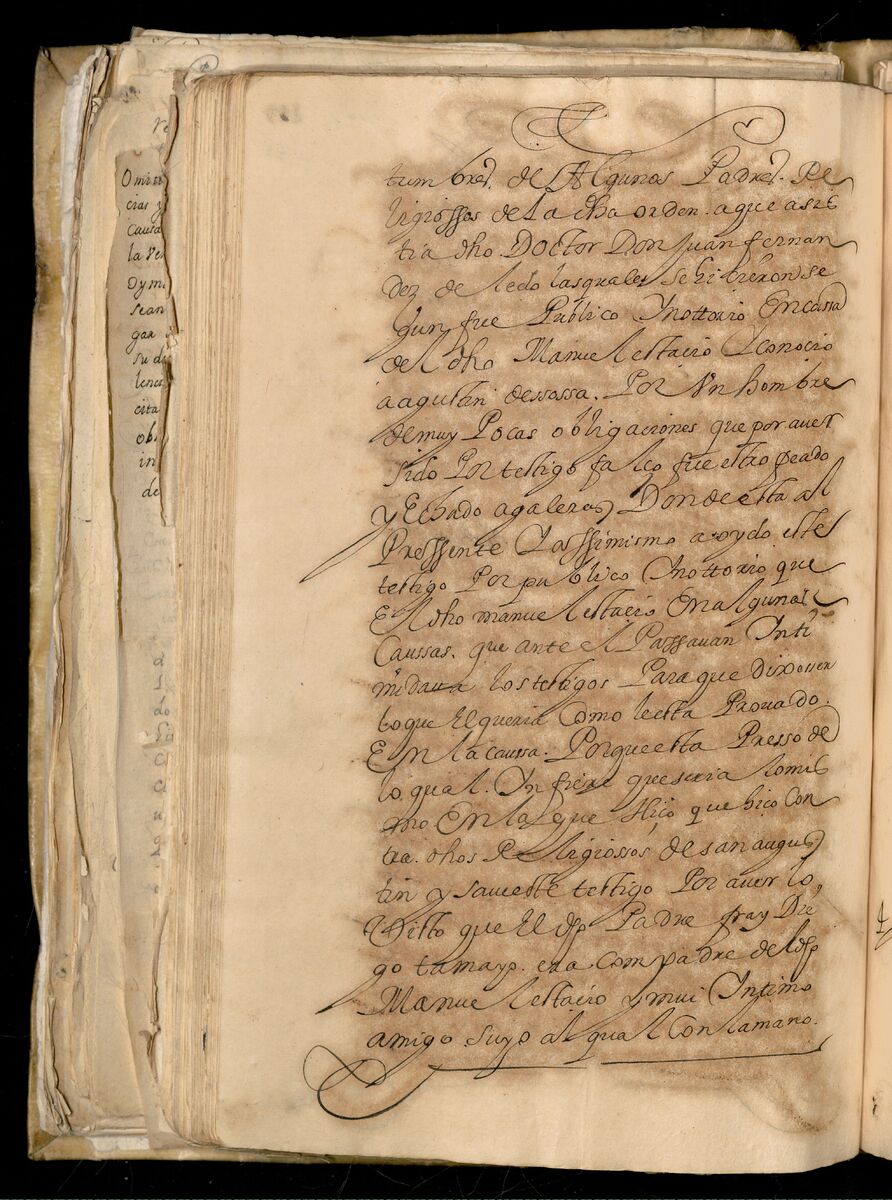 tumbres. de Algunos Padres. Re
ligiossos de la dha orden. a que asis
tia dho Doctor Don Juan fernan
dez de ledo las quales se hicieron se
gun fue Publico Ynottorio En cassa
del dho Manuel estacio Y conocio
a agustin de sossa. Por Vn hombre
de muy Pocas obligaciones que por aver
sido Por testigo falço fue estropeado
y Echado a galeras Donde esta al
Pressente Y assimismo a oydo este
testigo Por publico Ynottorio que
El dho manuel estacio En algunas
Caussas. que ante el Passauan Ynti
midaua los testigos Para que dixossen
lo que El queria Como le esta Prouado.
En la caussa. Porque esta Presso de
lo qual. Ynfiere que seria lo mis
mo En la que Hiço que hiço Con
tra. dhos Religiossos de san augus
tin y saue este testigo Por auer lo
Visto que El dho Padre fray Die
go tamayo. era compadre del dho
Manuel estacio y mui Yntimo
amigo suyo al qual Con la mano.
Omiss
cias y
Causa
la Re
Dymi
sean
gar
su d
lences
cita
ob
in
de